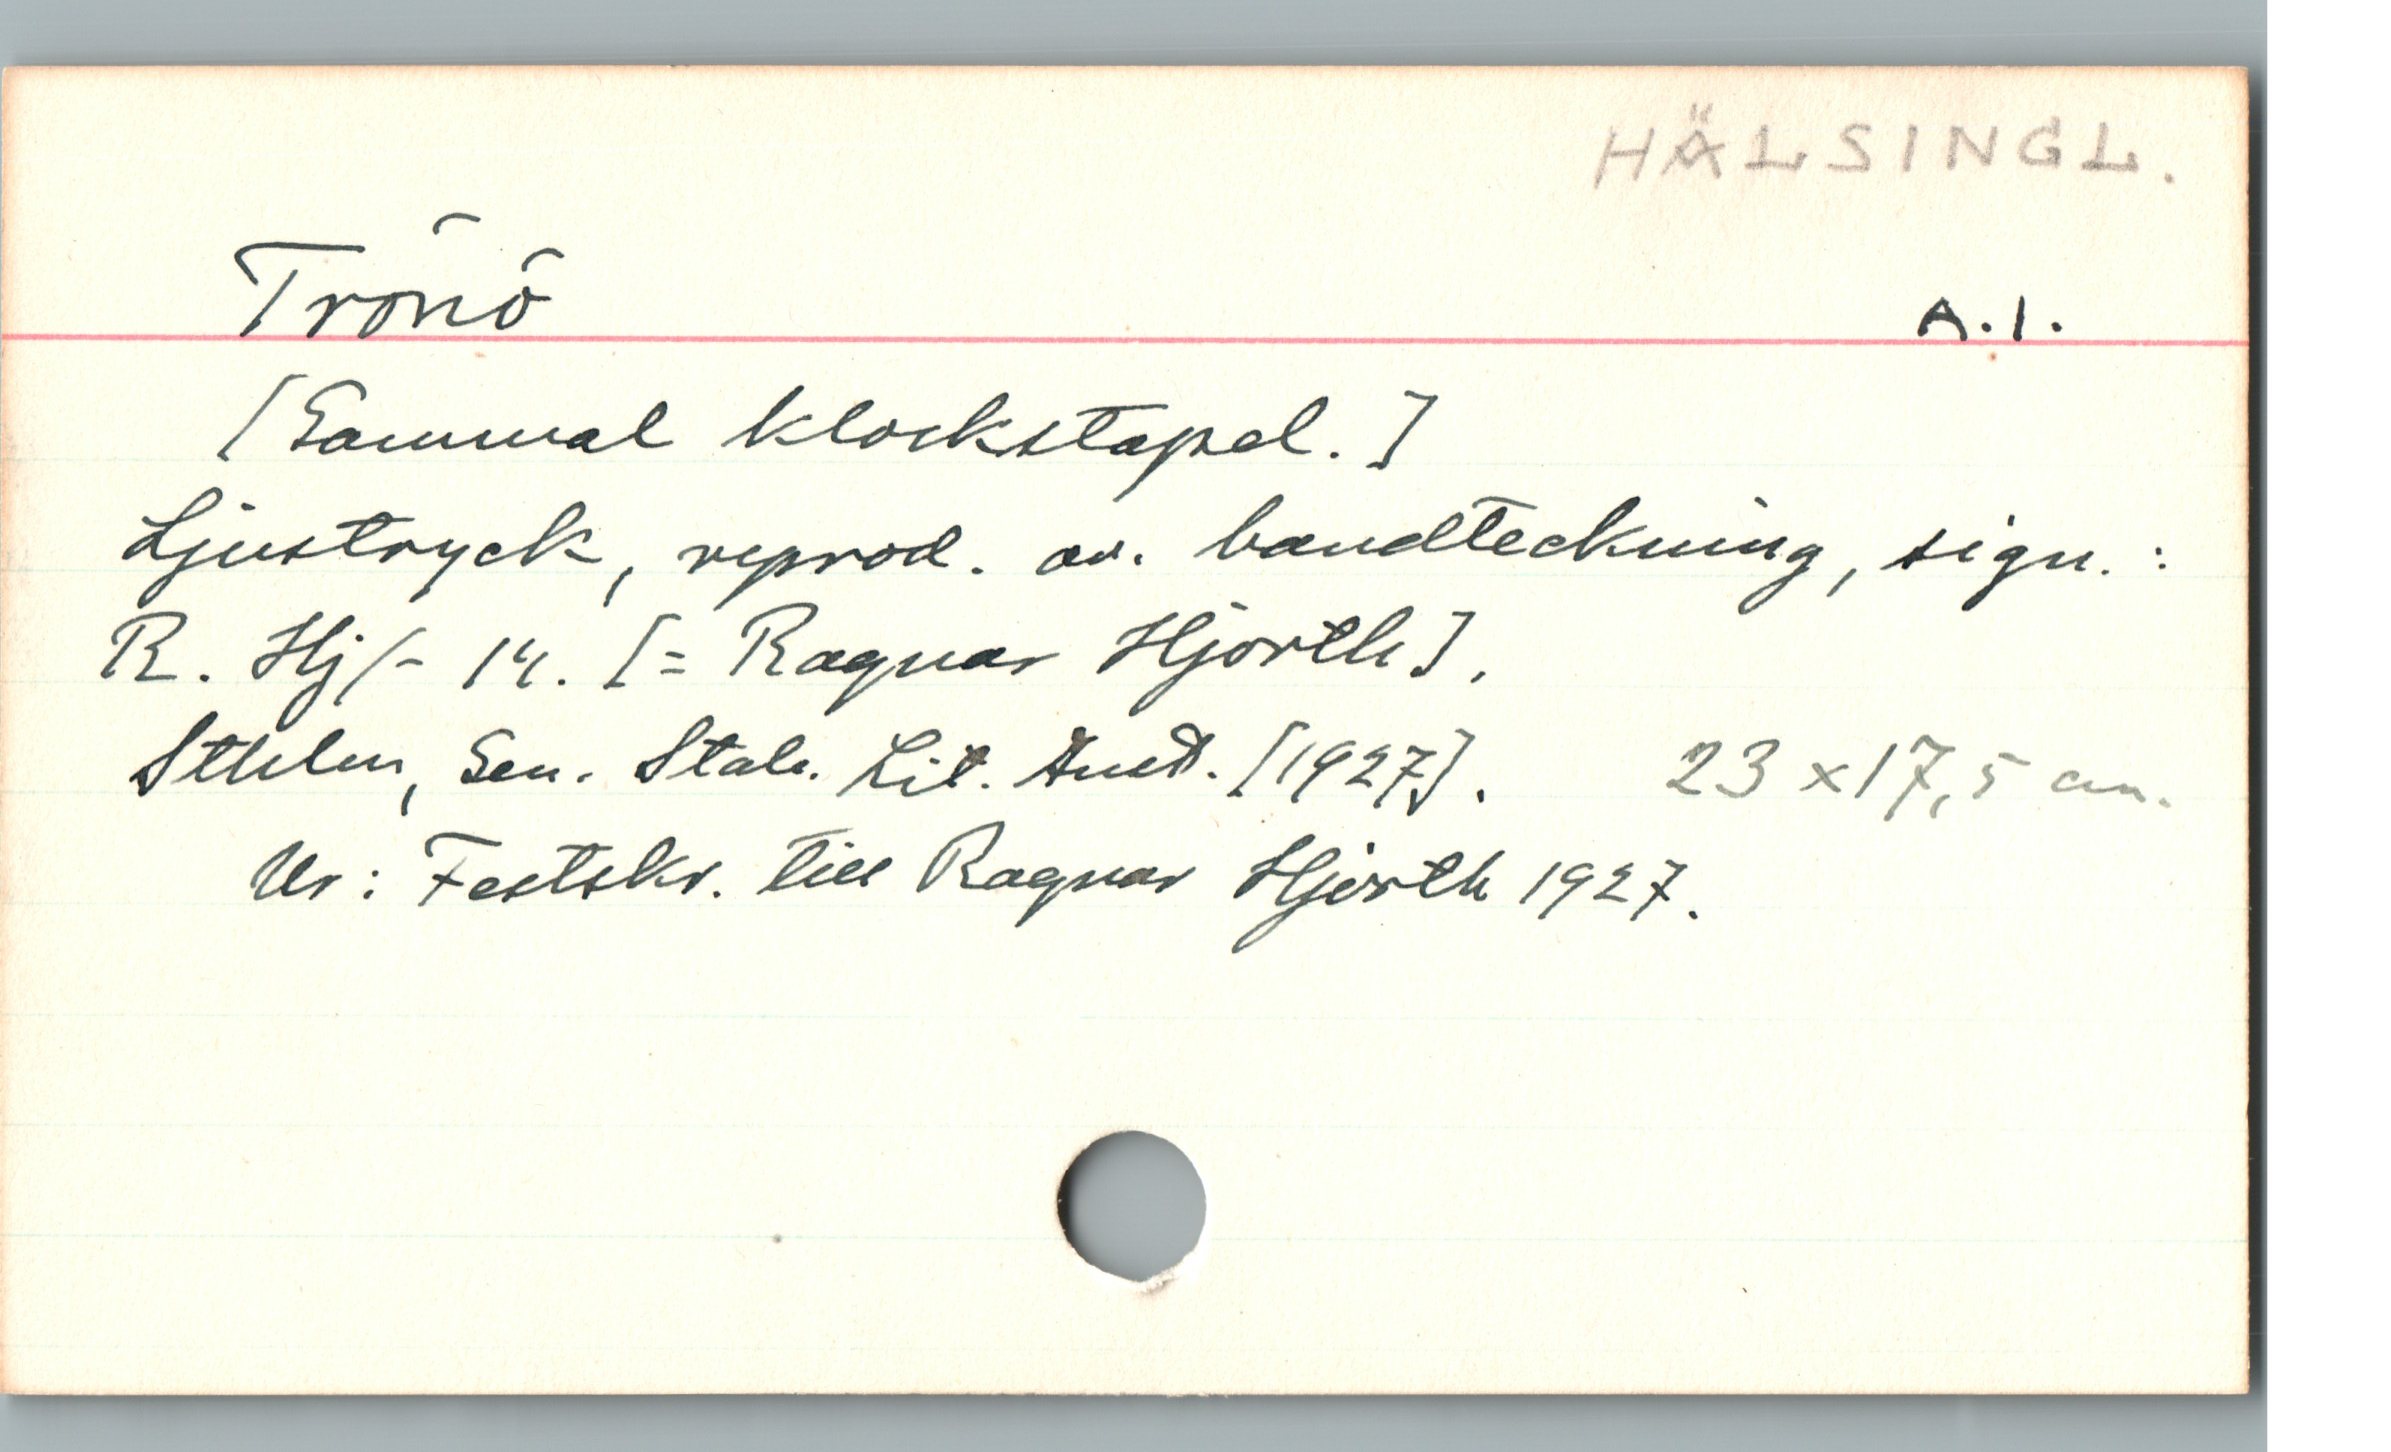 HÄLSINGL.
Trönö A.1.
[Gammal klockstapel.]
Ljustryck, reprod. av. handteckning, sign.:
R. Hj/- 14. [= Ragnar Hjorth].
Sthlm, Gen. Stab. Lit. Anst. [1927]. 23 x 17,5 cm.
Ur: Festskr. till Ragnar Hjorth 1927.